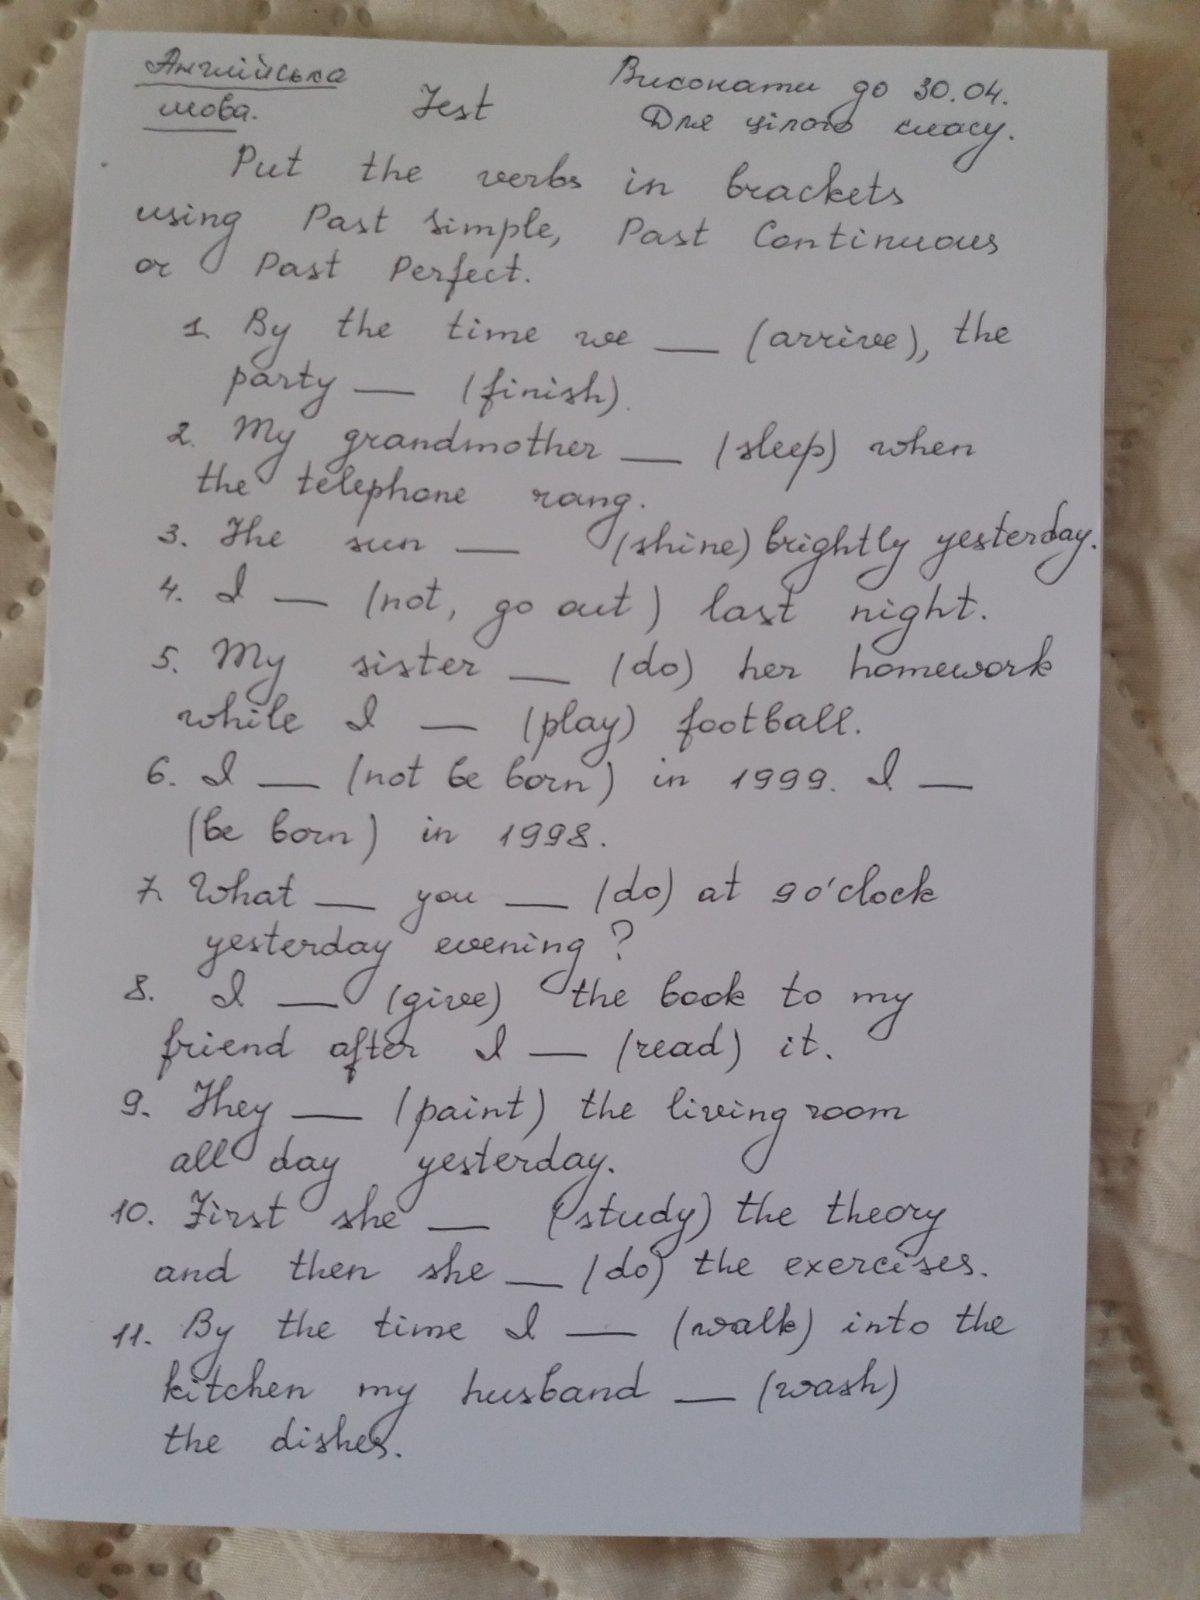 Англійська Виконати до 30.04.
мова. Test Для цілого класу.
Put the verbs in brackets
using Past Simple, Past Continuous
or Past Perfect.
1. By the time we __ (arrive), the
party __ (finish).
2. My grandmother __ (sleep) when
the telephone rang.
3. The sun __ (shine) brightly yesterday.
4. I __ (not, go out) last night.
5. My sister __ (do) her homework
while I __ (play) football.
6. I __ (not be born) in 1999. I __
(be born) in 1998.
7. What __ you __ (do) at 9 o'clock
yesterday evening?
8. I __ (give) the book to my
friend after I __ (read) it.
9. They __ (paint) the living room
all day yesterday.
10. First she __ (study) the theory
and then she __ (do) the exercises.
11. By the time I __ (walk) into the
kitchen my husband __ (wash)
the dishes.